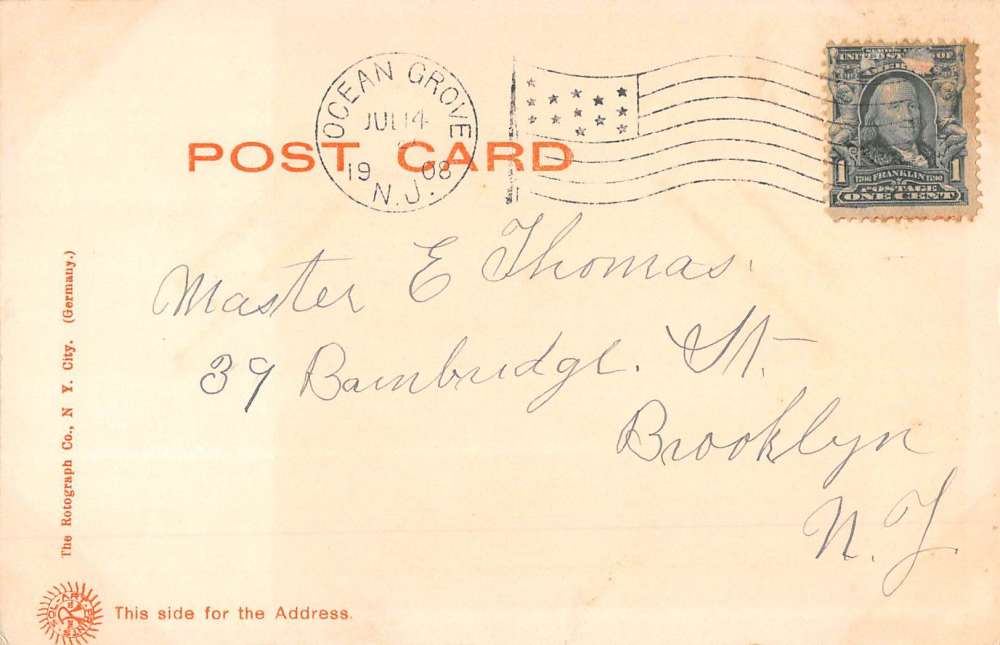 OCEAN GROVE
JUL 14
1908
N.J.
POST CARD
UNITED STATES OF
1
1
1706 FRANKLIN 1790
POSTAGE
ONE CENT
Master E Thomas
39 Bainbridge. St.
Brooklyn
N.Y.
The Rotograph Co., N Y. City. (Germany.)
SOL-ART PRINTS
This side for the Address.